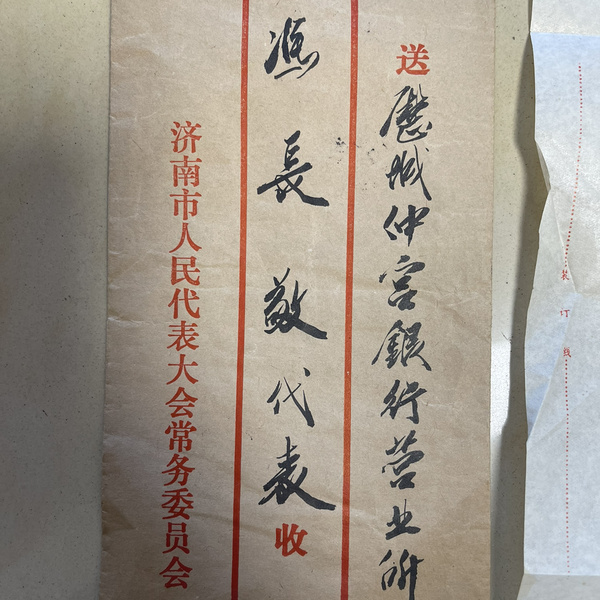 送 歷城仲宮銀行营业所
馮長敬代表 收
济南市人民代表大会常务委员会
装订线